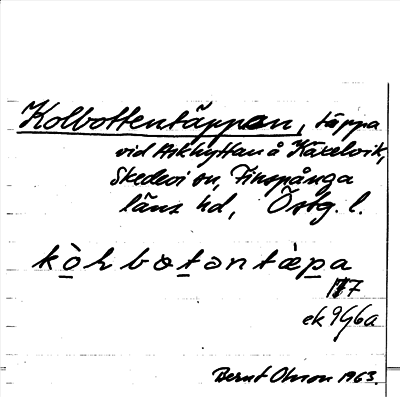 Kolbottentäppan, täppa
vid Askhyttan å Kaxelvik,
Skedevi sn, Finspånga
läns hd, Östg. l.
kòlbotəntäpa
117
ek 9G6a
Bernt Olsson 1963.